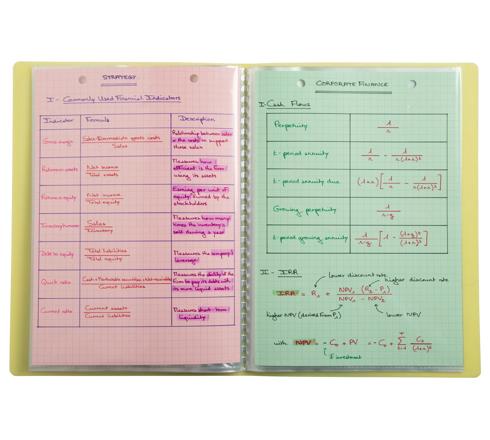 STRATEGY
I - Commonly Used Financial Indicators
Indicator Formula Description
Gross margin Sales - Intermediate goods costs / Sales Relationship between sales
& the costs to support
those sales
Return on assets Net income / Total assets Measures how
efficient is the firm
using its assets
Return on equity Net income / Total equity Earning per unit of
equity owned by the
stockholders
Inventory turnover Sales / Inventory Measures how many
times the inventory
is sold during a year
Debt to equity Total liabilities / Total equity Measures the company's
leverage
Quick ratio Cash + Marketable securities + Net receivables / Current liabilities Measures the ability of the
firm to pay its debts with
its more liquid assets
Current ratio Current assets / Current liabilities Measures short-term
liquidity
CORPORATE FINANCE
I- Cash Flows
Perpetuity 1/r
t-period annuity 1/r - 1/r(1+r)^t
t-period annuity due (1+r)[1/r - 1/r(1+r)^t]
Growing perpetuity 1/r-g
t-period growing annuity 1/r-g [1 - (1+g)^t/(1+r)^t]
II - IRR
lower discount rate
higher discount rate
IRR = R₁ + NPV₁ (R₂ - R₁) / NPV₁ - NPV₂
higher NPV (derived from R₁) lower NPV
with NPV = -C₀ + PV = -C₀ +
investment